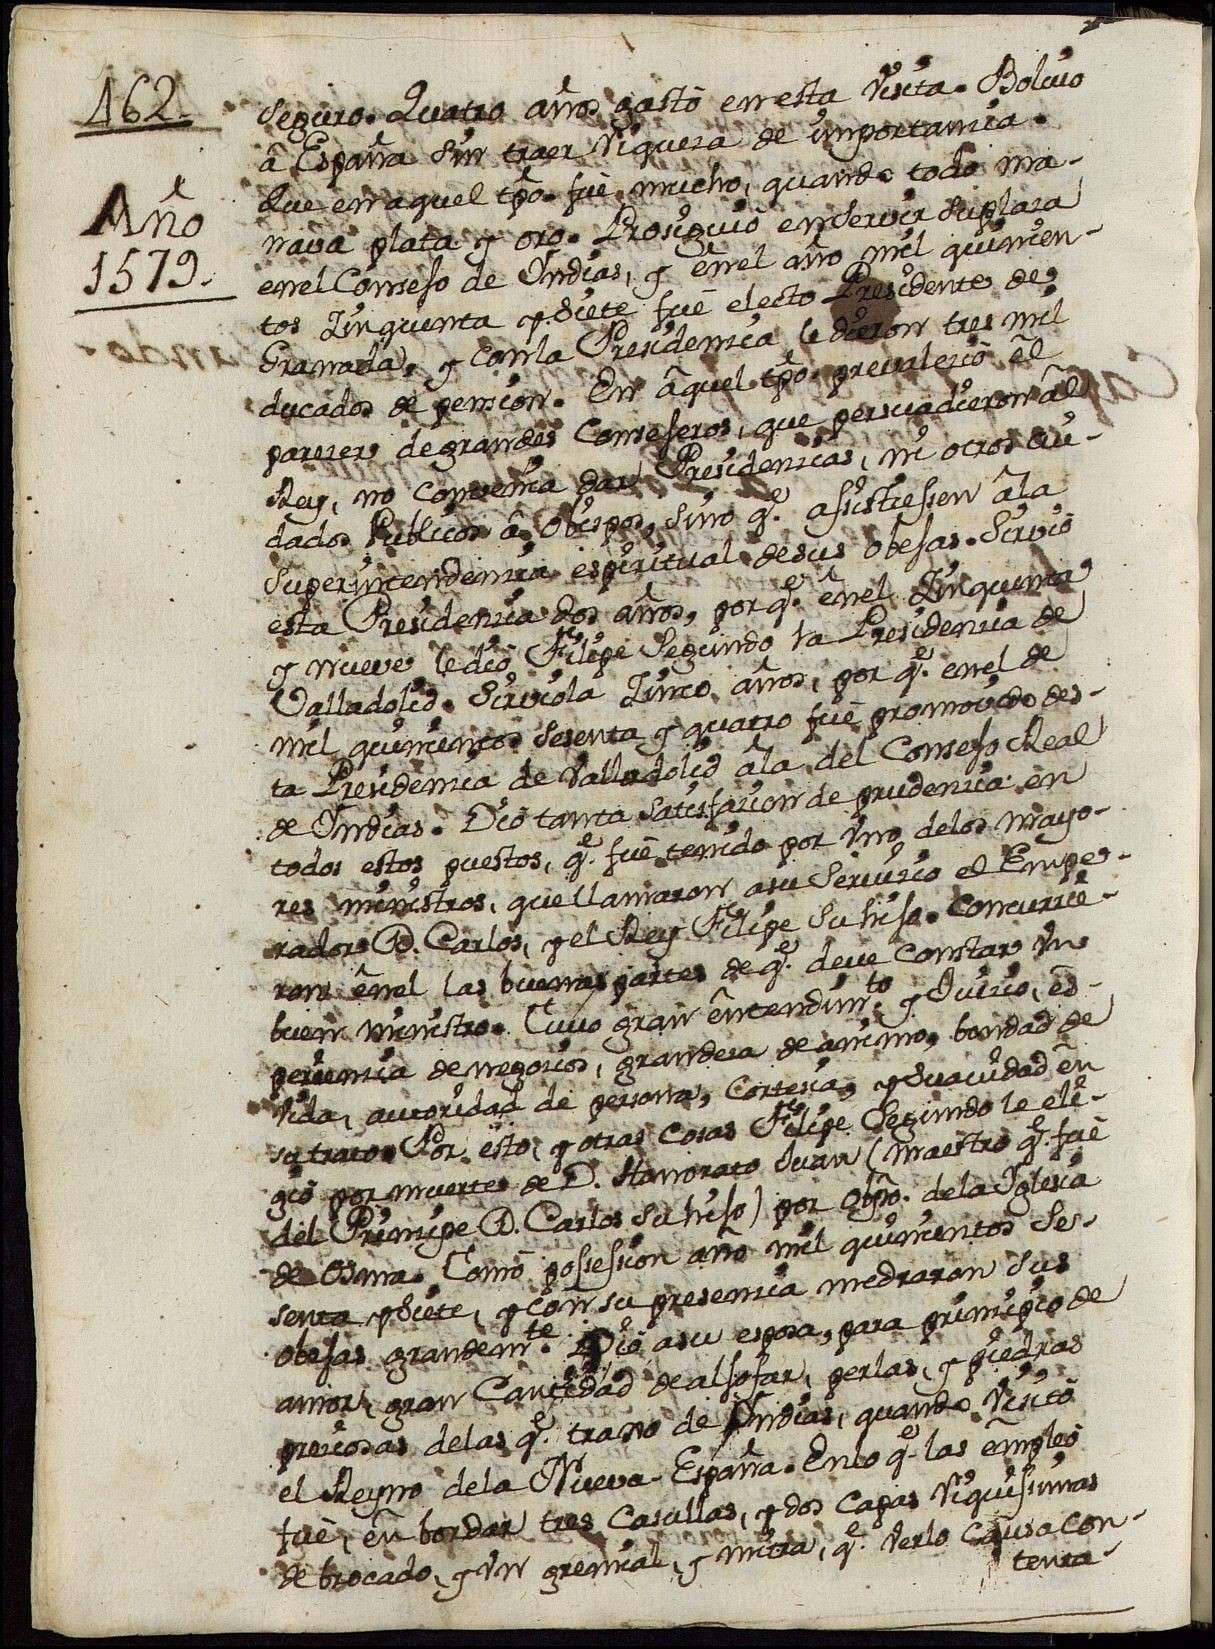 162.
Año
1579.
seguro. Quatro años gastó en esta Visita. Bolvio
â España sin traer riqueza de importancia.
Que en aquel tpõ. fué mucho, quando todo ma-
nava plata y oro. Prosiguió en servir su plaza
en el Consejo de Indias, y en el año mil quinien-
tos Zinquenta y Siete fué electo Presidente de
Granada, y con la Presidencia le dieron tres mil
ducados de pension. En âquel tpõ. prevaleció êl
parezer de grandes Consejeros, que persuadieron âl
Rey, no convenia dar Presidencias, ni otros cui-
dados Publicos â Obispos, sino q.e asistiesien âla
Superintendencia espiritual de sus obejas. Sirvió
esta Presidencia dos años, por q.e ênel Zinquenta
y nueve le dió Felipe Segundo la Presidencia de
Valladolid. Sirviola Zinco años, por q.e en el de
mil quinientos sesenta y quatro fué promovido des-
ta Presidencia de Valladolid âla del Consejo Real
de Indias. Dió tanta satisfacion de prudencia en
todos estos puestos, q.e fué tenido por Uno delos mayo-
res ministros, que llamaron a su Servicio el Empe-
rador D. Carlos, y el Rey Felipe su hijo. Concurrie-
ron ênel las buenas partes de q.e deve constar Un
buen ministro. Tuvo gran êntendim.to y Juicio, ês-
periencia de negocios, grandeza de animo, bondad de
Vida, autoridad de persona, Cortesia, y Suavidad ên
su trato. Por esto, y otras cosas Felipe Segundo le eli-
gió por muerte de D. Honorato Juan (Maestro q.e fué
del Principe D. Carlos su hijo) por Obpõ. dela Iglesia
de Osma. Tomó possesion año mil quinientos se-
senta y Siete, y con su presencia medraron sus
obejas grandem.te Dió a su esposa, para principio de
amor, gran Cantidad de aljofar, perlas, y piedras
preciosas delas q.e trajo de Indias, quando Visitó
el Reyno dela Nueva España. En lo q.e las êmpleó
fué, ên bordar tres Casullas, y dos Capas riquisimas
de brocado, y Un gremial, y mitra, q.e Verlo Causa con-
tenta-